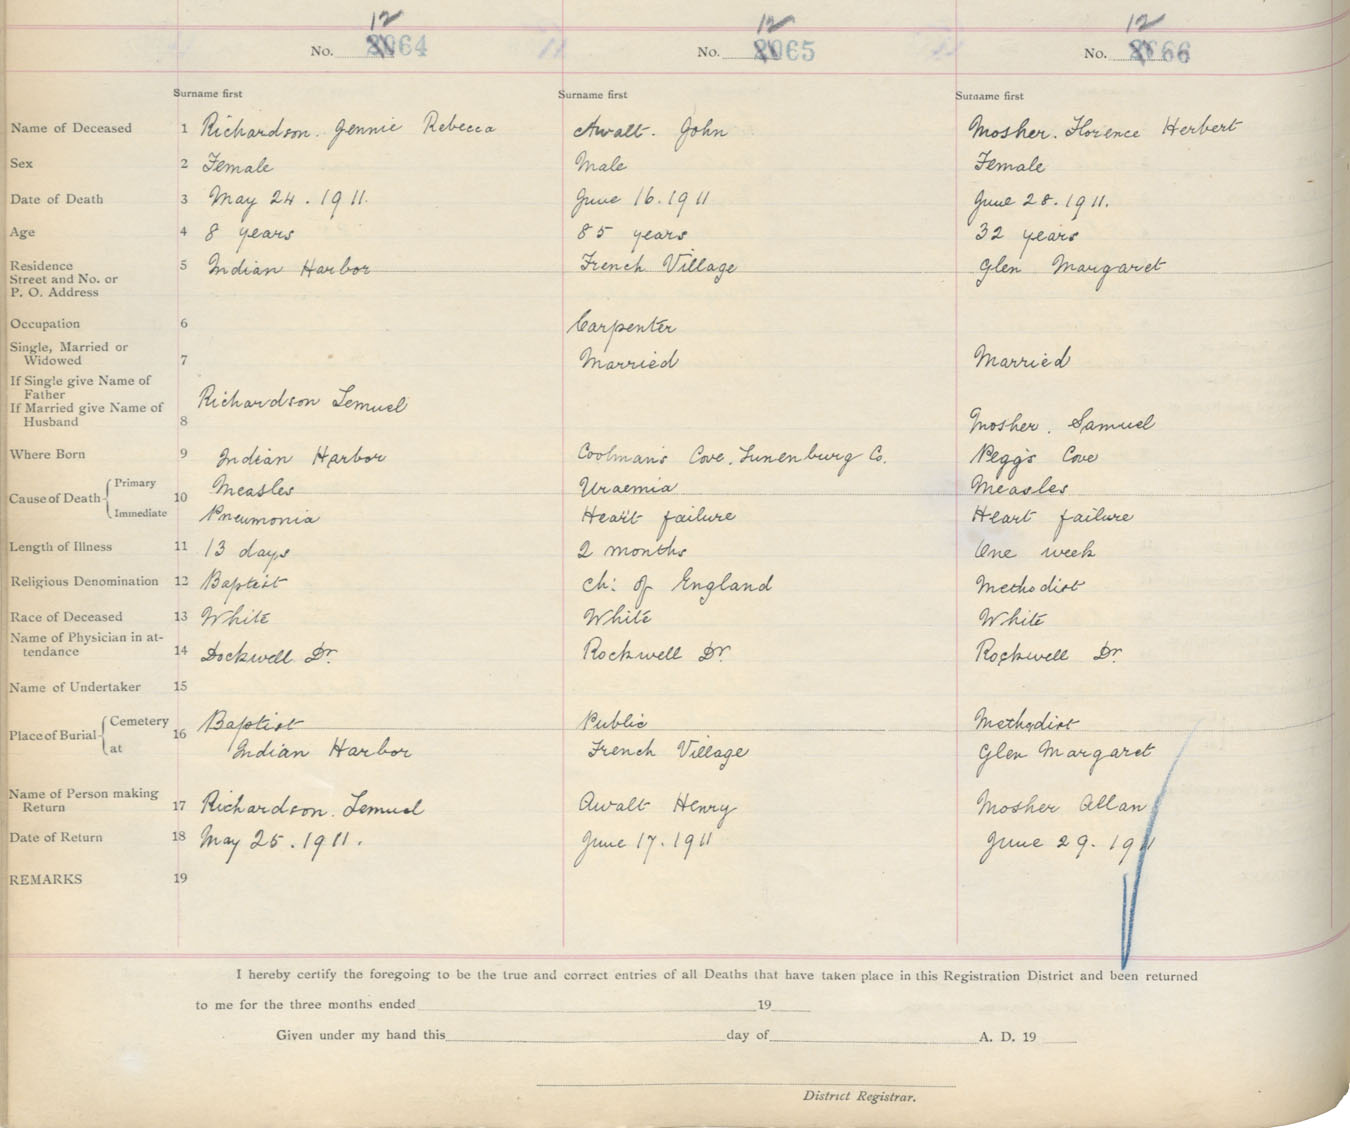 12 12 12
No. 2064 No. 2065 No. 2066
Surname first Surname first Surname first
Name of Deceased 1 Richardson. Jennie Rebecca Awalt. John Mosher. Florence Herbert
Sex 2 Female Male Female
Date of Death 3 May 24. 1911. June 16. 1911 June 28. 1911.
Age 4 8 years 85 years 32 years
Residence 5 Indian Harbor French Village Glen Margaret
Street and No. or
P. O. Address
Occupation 6 Carpenter
Single, Married or
Widowed 7 Married Married
If Single give Name of
Father Richardson Lemuel
If Married give Name of
Husband 8 Mosher. Samuel
Where Born 9 Indian Harbor Coolman's Cove. Lunenburg Co. Peggs Cove
Cause of Death Primary 10 Measles Uraemia Measles
Immediate Pneumonia Heart failure Heart failure
Length of Illness 11 13 days 2 months One week
Religious Denomination 12 Baptist Ch: of England Methodist
Race of Deceased 13 White White White
Name of Physician in at-
tendance 14 Dockwell Dr. Rockwell Dr. Rockwell Dr.
Name of Undertaker 15
Place of Burial Cemetery 16 Baptist Public Methodist
at Indian Harbor French Village Glen Margaret
Name of Person making
Return 17 Richardson. Lemuel Awalt Henry Mosher Allan
Date of Return 18 May 25. 1911. June 17. 1911 June 29. 1911
REMARKS 19
I hereby certify the foregoing to be the true and correct entries of all Deaths that have taken place in this Registration District and been returned
to me for the three months ended 19
Given under my hand this day of A. D. 19
District Registrar.